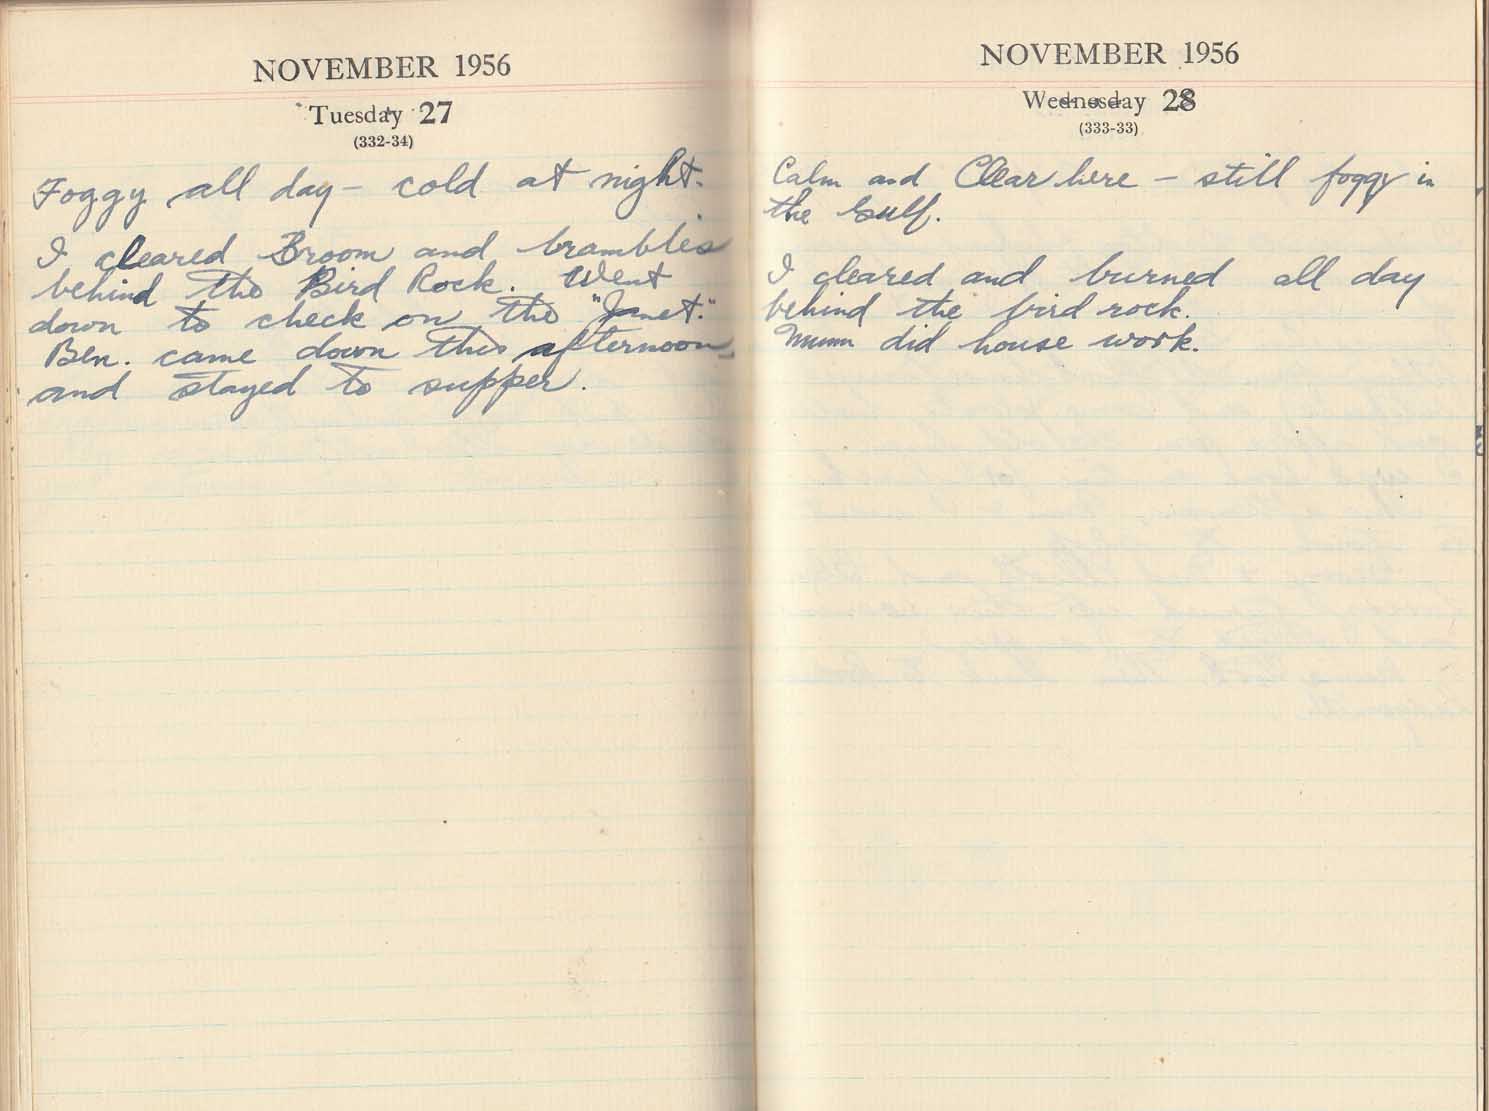 NOVEMBER 1956
Tuesday 27
(332-34)
Foggy all day – cold at night.
I cleared Broom and brambles
behind the Bird Rock. Went
down to check on the "Janet."
Ben. came down this afternoon,
and stayed to supper.
NOVEMBER 1956
Wednesday 28
(333-33)
Calm and Clear here – still foggy in
the Gulf.
I cleared and burned all day
behind the bird rock.
Mum did house work.